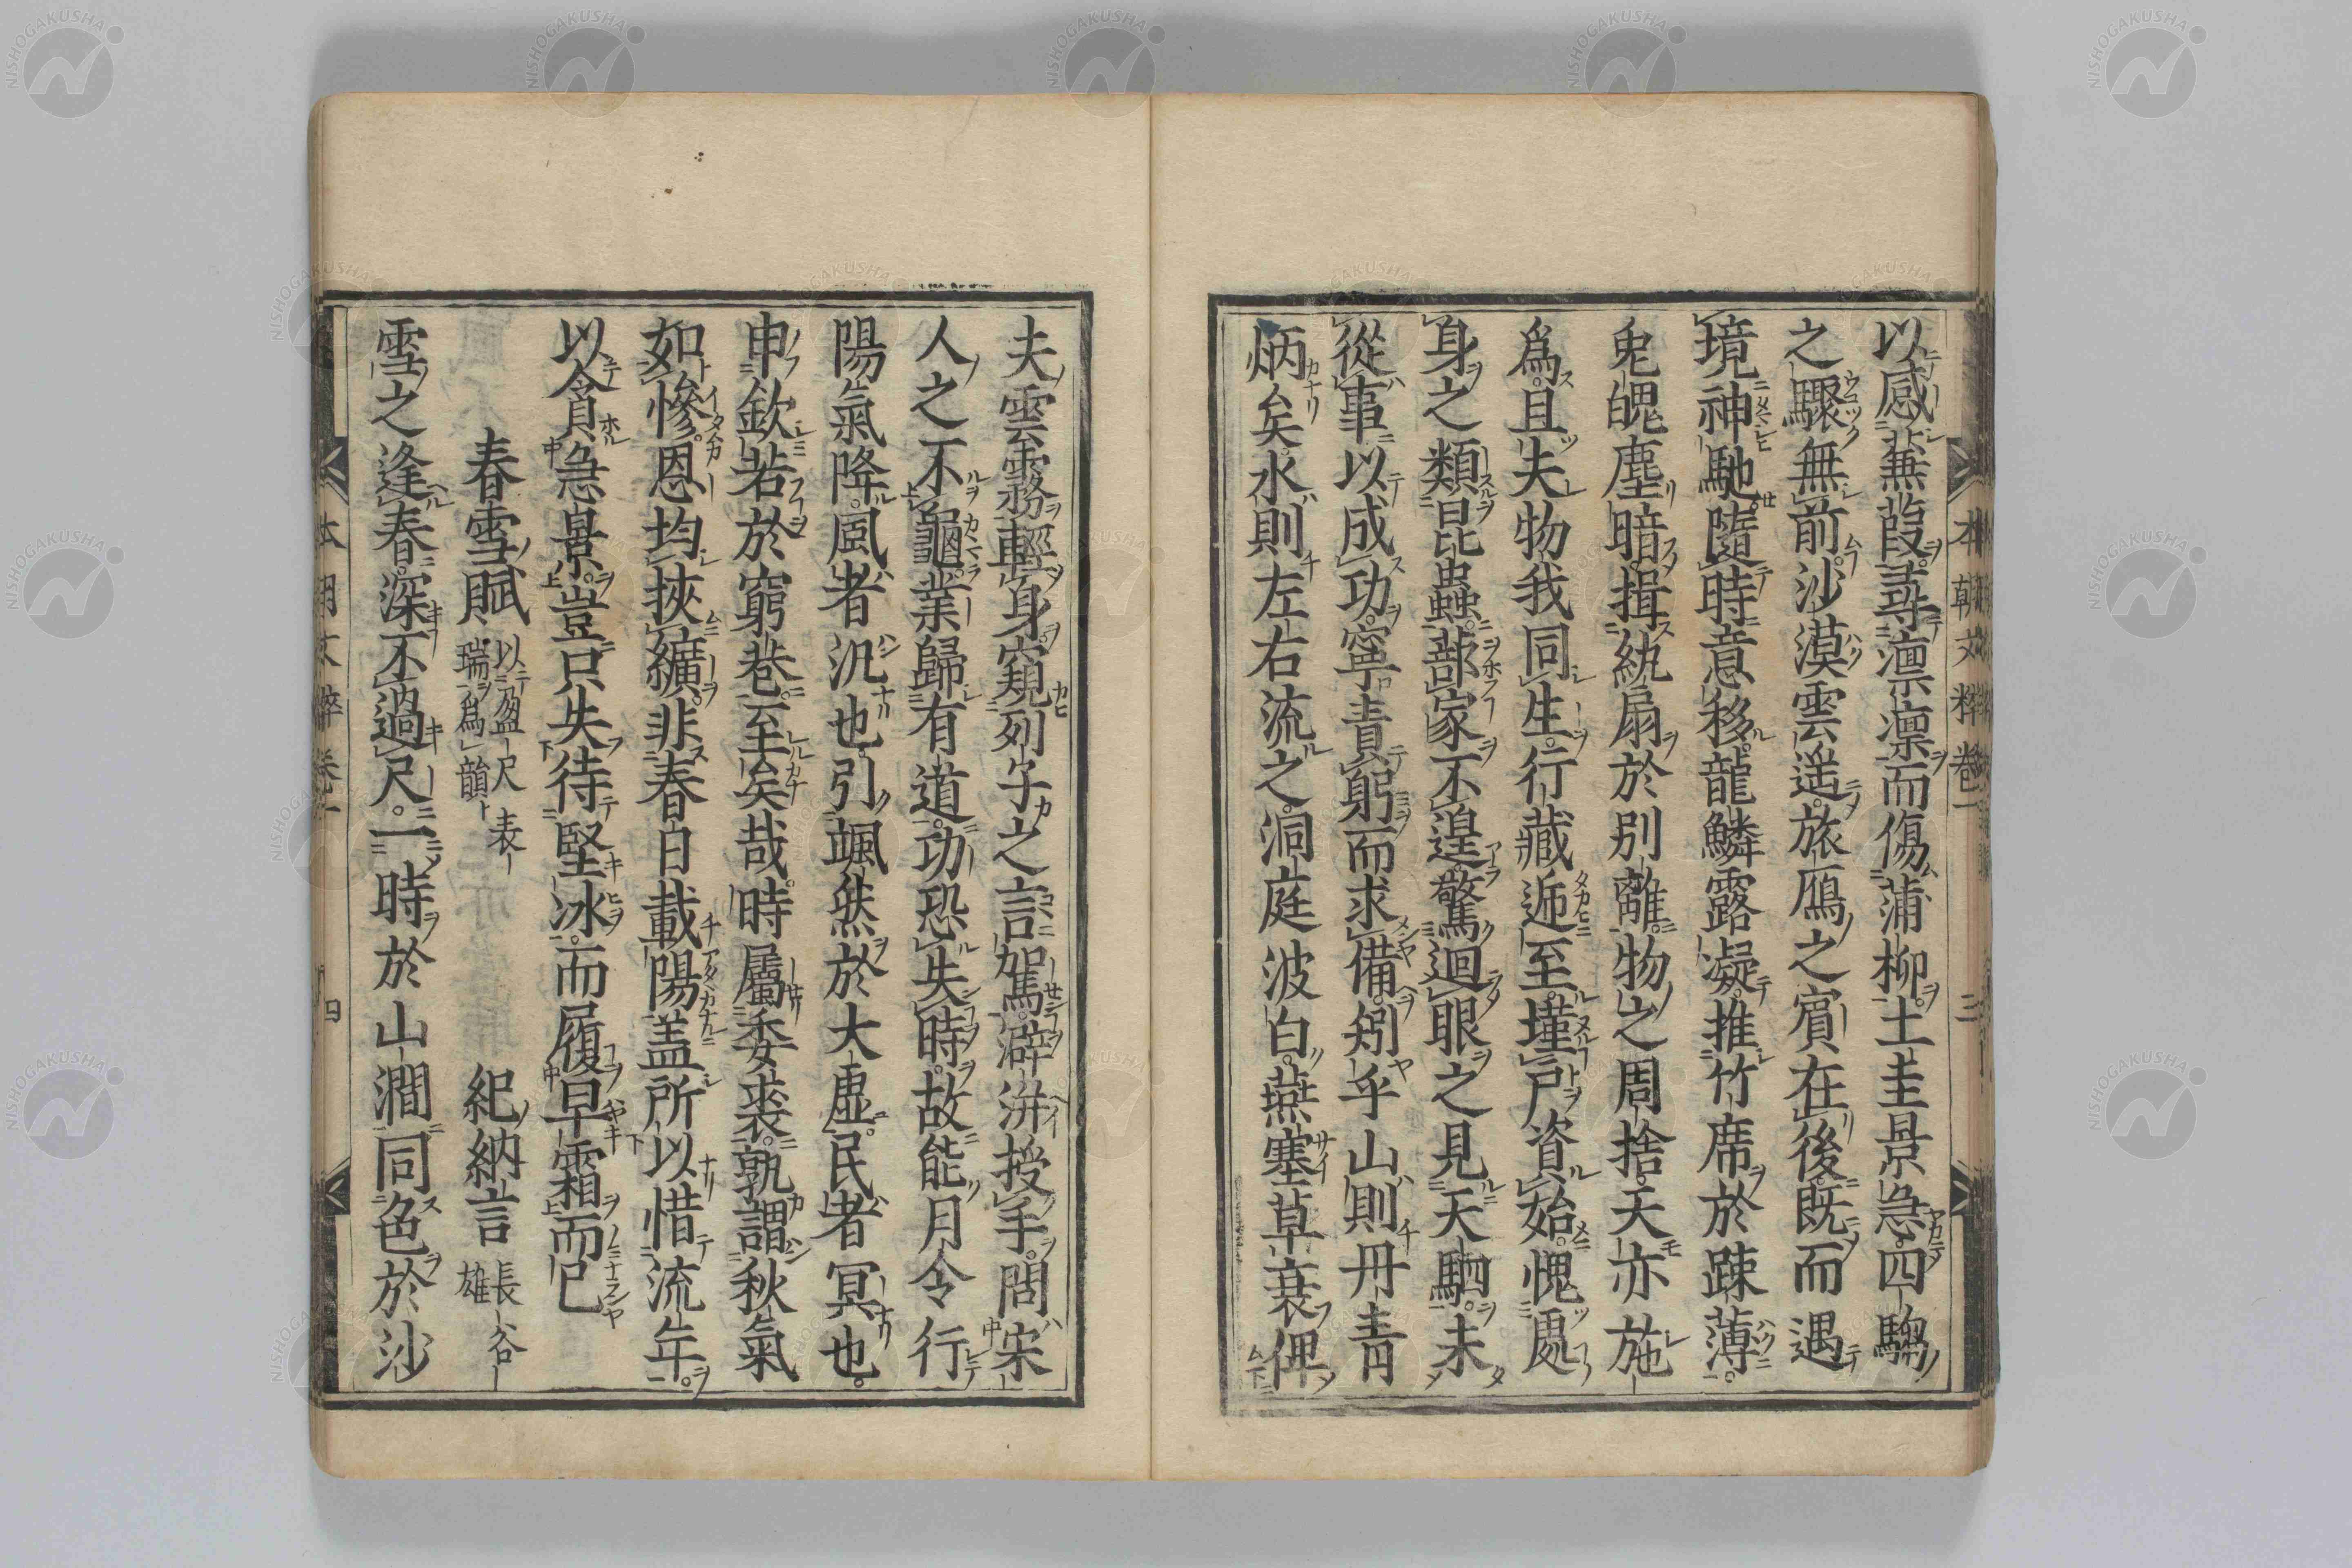 以感蒹葭尋凛凛而傷蒲柳土圭景急四騶
之驟無前沙漠雲遥旅鴈之賓在後既而遇
境神馳隨時意移龍鱗露凝推竹席於疎薄
兎魄塵暗揖紈扇於別離物之周捨天亦施
爲且夫物我同生行藏逓至墐戸資始愧處
身之類昆蟲蔀家不遑驚迴眼之見天駟未
從事以成功寧責躬而求備矧乎山則丹青
炳矣水則左右流之洞庭波白燕塞草衰俾
夫雲霧輕身窺列子之言駕澼洴授手問宋
人之不龜業歸有道功恐失時故能月令行
陽氣降風者汎也引颯然於大虚民者冥也
申欽若於窮巷至矣哉時屬委裘孰謂秋氣
如慘恩均挾纊非春日載陽盖所以惜流年
以貪急景豈只失待堅冰而履早霜而已
春雪賦 以盈尺表瑞爲韻 紀納言 長谷雄
雪之逢春深不過尺一時於山澗同色於沙
本朝文粹卷一 三
本朝文粹卷一 四
NISHOGAKUSHA